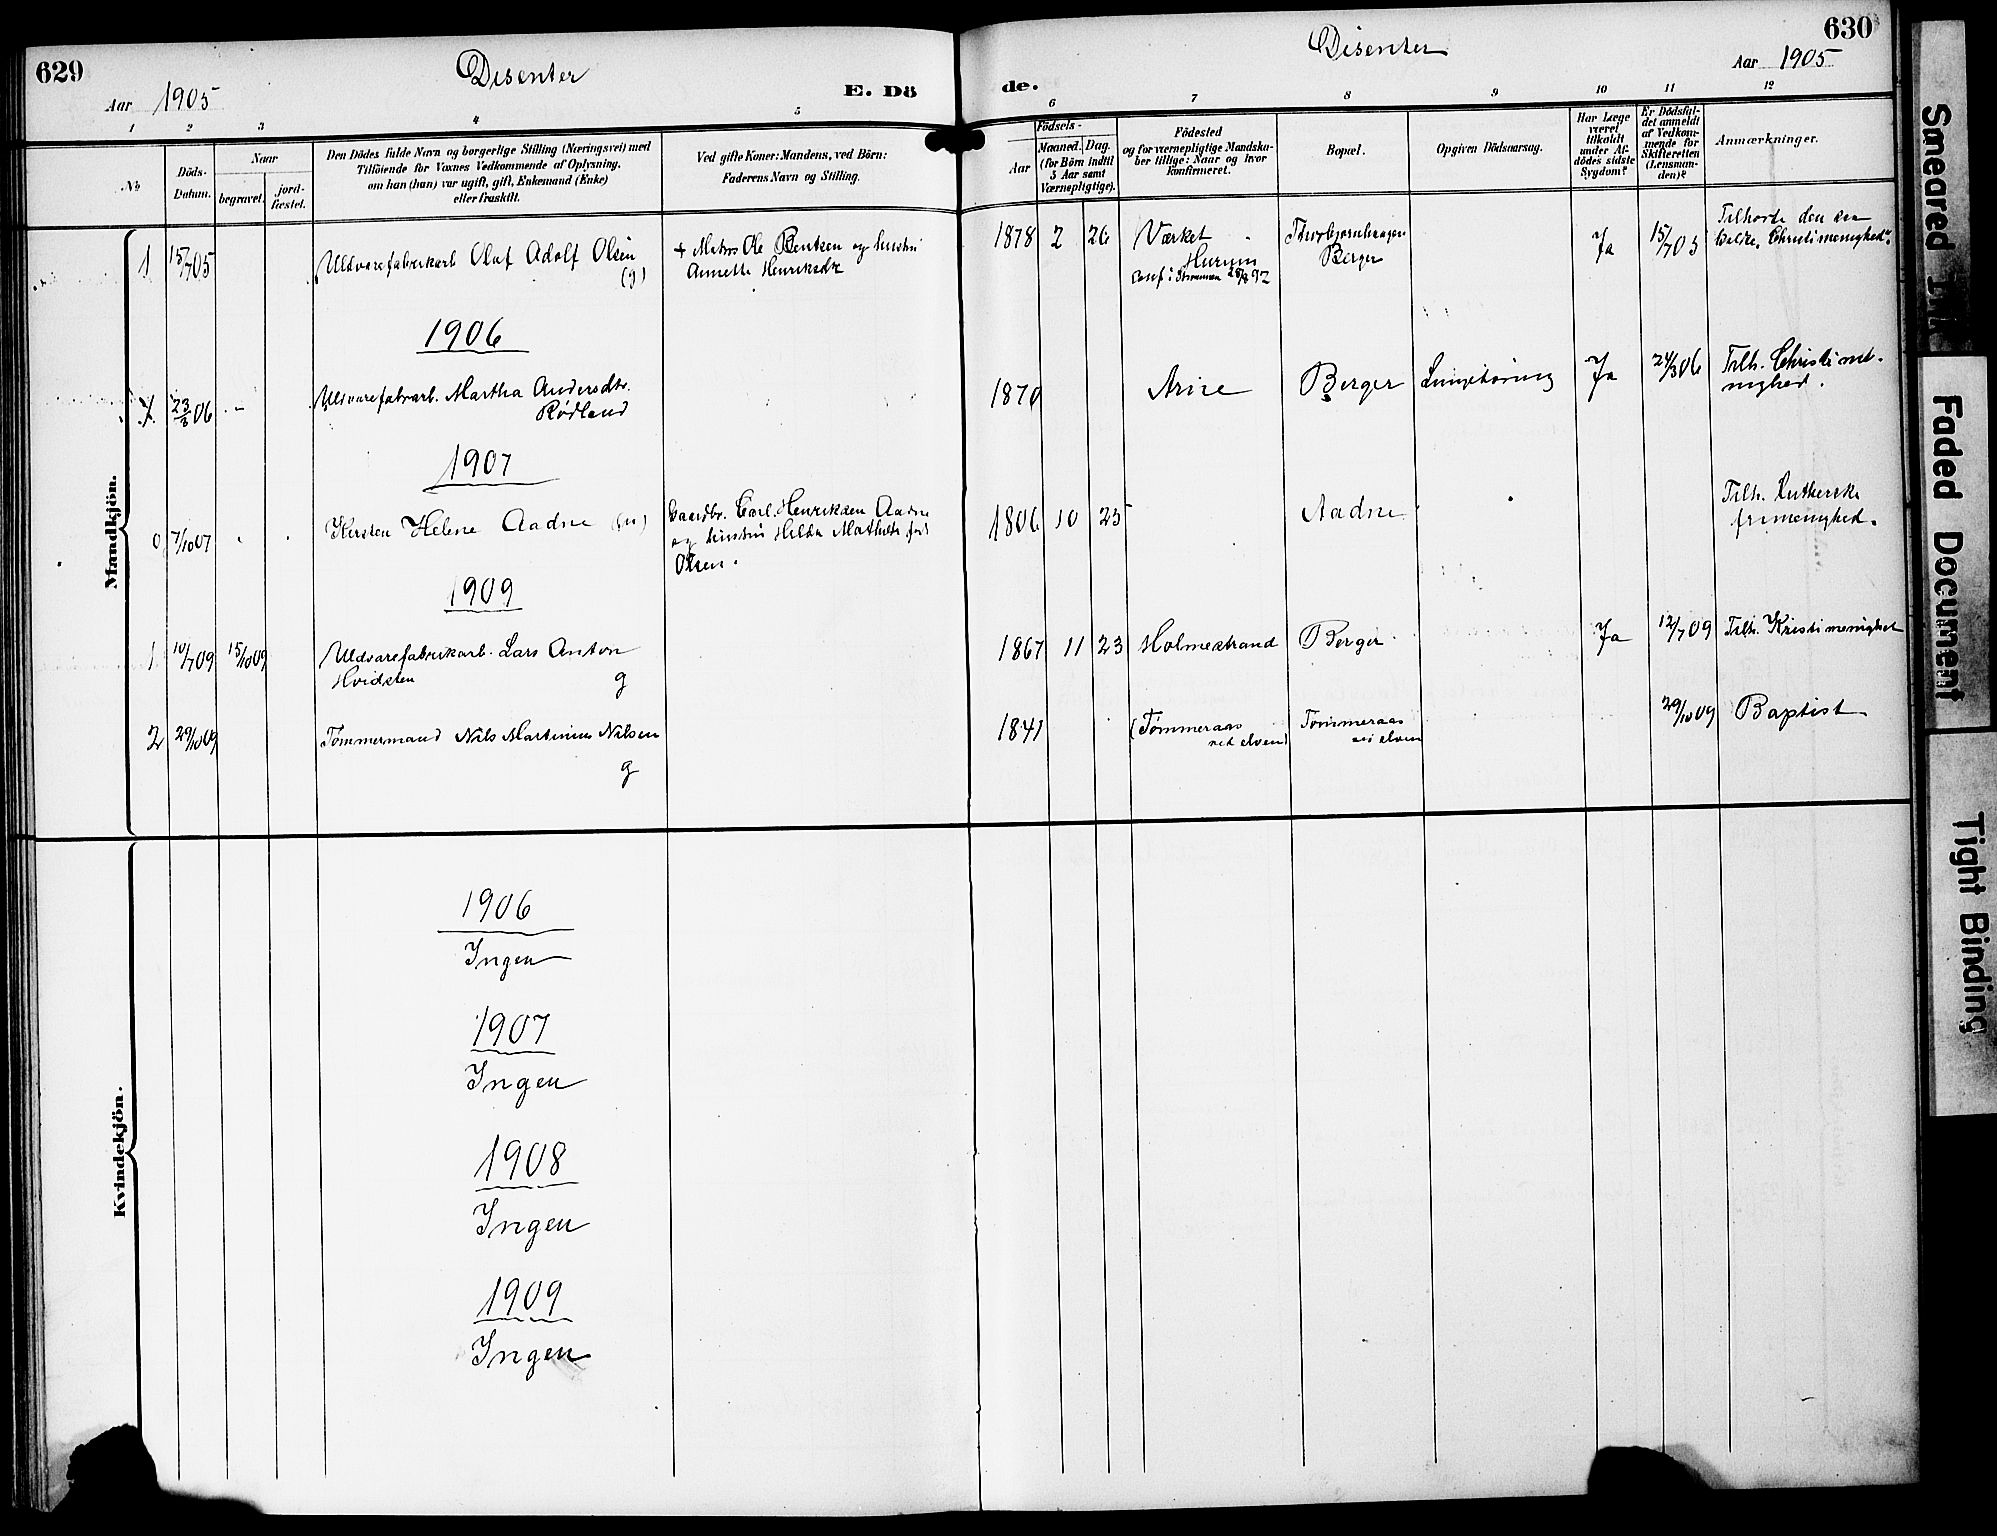 629
Disenter
Aar 1905
E. Dö
1
2
3
4
5
No
Döds-
Datum.
Naar
begravet.
jord-
fæstet.
Den Dödes fulde Navn og borgerlige Stilling (Næringsvei) med
Tilföiende for Voxnes Vedkommende af Oplysning,
om han (hun) var ugift, gift, Enkemand (Enke)
eller fraskilt.
Ved gifte Koner: Mandens, ved Börn:
Faderens Navn og Stilling.
Mandkjön.
1 15/7 05
Uldvarefabrikarb Olaf Adolf Olsen
(g)
Ole Bentsen og hustru
Annette Henriksdtr
1906
23/3 06
Uldvarefabrarb. Martha Andersdtr.
Rødland
1907
0 7/10 07
Kirsten Helene Aadne (u)
Gaardbr. Carl Henriksen Aadne
og hustru Hilda Mathilde født
Olsen.
1909
1 10/7 09 15/10 09
Uldvarefabrikarb. Lars Anton
Hvidsten g
2 29/10 09
Tømmermand Nils Martinius Nilsen
g
Kvindekjön.
1906
Ingen
1907
Ingen
1908
Ingen
1909
Ingen
630
Disenter
Aar 1905
de.
6
7
8
9
10
11
12
Födsels-
Aar
Maaned. Dag.
(for Börn indtil
5 Aar samt
Værnepligtige).
Födested
og for værnepligtige Mandska-
ber tillige: Naar og hvor
konfirmeret.
Bopæl.
Opgiven Dödsaarsag.
Har Læge
været
tilkaldt
under Af-
dödes sidste
Sygdom?
Er Dödsfal-
det anmeldt
af Vedkom-
mende for
Skifteretten
(Lensman-
den)?
Anmærkninger.
1878 2 26
Værket
Hurum
Thorbjørnhaugen
Berger
Ja
15/7 05
Tilhørte den saa
kaldte "Christimenighed".
1870
Berger
Ja
24/3 06
Tilh. Christi me-
nighed.
1806 10 25
Aadne
Tilh. Lutherske
frimenighed.
1867 11 23
Holmestrand
Berger
Ja
12/7 09
Tilh. Kristi menighet
1841
(Tømmeraas
ved elven)
Tømmeraas
ved elven
29/10 09
Baptist
Smeared Ink
Faded Document
Tight Binding